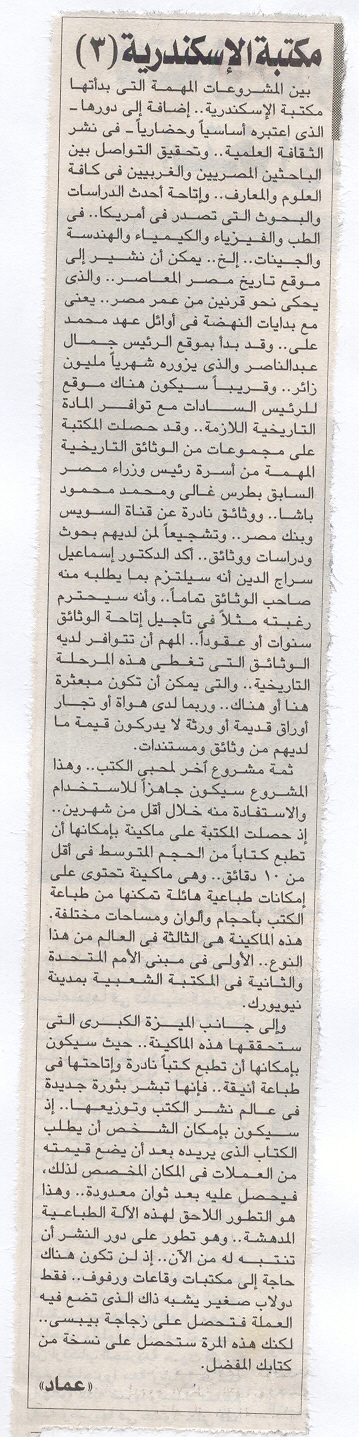 مكتبة الإسكندرية (٣)
بين المشروعات المهمة التى بدأتها
مكتبة الإسكندرية.. إضافة إلى دورها ـ
الذى اعتبره أساسياً وحضارياً ـ فى نشر
الثقافة العلمية.. وتحقيق التواصل بين
الباحثين المصريين والغربيين فى كافة
العلوم والمعارف.. وإتاحة أحدث الدراسات
والبحوث التى تصدر فى أمريكا.. فى
الطب والفيزياء والكيمياء والهندسة
والجينات.. إلخ.. يمكن أن نشير إلى
موقع تاريخ مصر المعاصر.. والذى
يحكى نحو قرنين من عمر مصر.. يعنى
مع بدايات النهضة فى أوائل عهد محمد
على.. وقد بدأ بموقع الرئيس جمال
عبدالناصر والذى يزوره شهرياً مليون
زائر.. وقريباً سيكون هناك موقع
للرئيس السادات مع توافر المادة
التاريخية اللازمة.. وقد حصلت المكتبة
على مجموعات من الوثائق التاريخية
المهمة من أسرة رئيس وزراء مصر
السابق بطرس غالى ومحمد محمود
باشا.. ووثائق نادرة عن قناة السويس
وبنك مصر.. وتشجيعاً لمن لديهم بحوث
ودراسات ووثائق.. أكد الدكتور إسماعيل
سراج الدين أنه سيلتزم بما يطلبه منه
صاحب الوثائق تماماً.. وأنه سيحترم
رغبته مثلاً فى تأجيل إتاحة الوثائق
سنوات أو عقوداً.. المهم أن تتوافر لديه
الوثائق التى تغطى هذه المرحلة
التاريخية.. والتى يمكن أن تكون مبعثرة
هنا أو هناك.. وربما لدى هواة أو تجار
أوراق قديمة أو ورثة لا يدركون قيمة ما
لديهم من وثائق ومستندات.
ثمة مشروع آخر لمحبى الكتب.. وهذا
المشروع سيكون جاهزاً للاستخدام
والاستفادة منه خلال أقل من شهرين..
إذ حصلت المكتبة على ماكينة بإمكانها أن
تطبع كتاباً من الحجم المتوسط فى أقل
من ١٠ دقائق.. وهى ماكينة تحتوى على
إمكانات طباعية هائلة تمكنها من طباعة
الكتب بأحجام وألوان ومساحات مختلفة.
هذه الماكينة هى الثالثة فى العالم من هذا
النوع.. الأولى فى مبنى الأمم المتحدة
والثانية فى المكتبة الشعبية بمدينة
نيويورك.
وإلى جانب الميزة الكبرى التى
ستحققها هذه الماكينة.. حيث سيكون
بإمكانها أن تطبع كتباً نادرة وإتاحتها فى
طباعة أنيقة.. فإنها تبشر بثورة جديدة
فى عالم نشر الكتب وتوزيعها.. إذ
سيكون بإمكان الشخص أن يطلب
الكتاب الذى يريده بعد أن يضع قيمته
من العملات فى المكان المخصص لذلك،
فيحصل عليه بعد ثوان معدودة.. وهذا
هو التطور اللاحق لهذه الآلة الطباعية
المدهشة.. وهو تطور على دور النشر أن
تنتبه له من الآن.. إذ لن تكون هناك
حاجة إلى مكتبات وقاعات ورفوف.. فقط
دولاب صغير يشبه ذاك الذى تضع فيه
العملة فتحصل على زجاجة بيبسى..
لكنك هذه المرة ستحصل على نسخة من
كتابك المفضل.
«عماد»